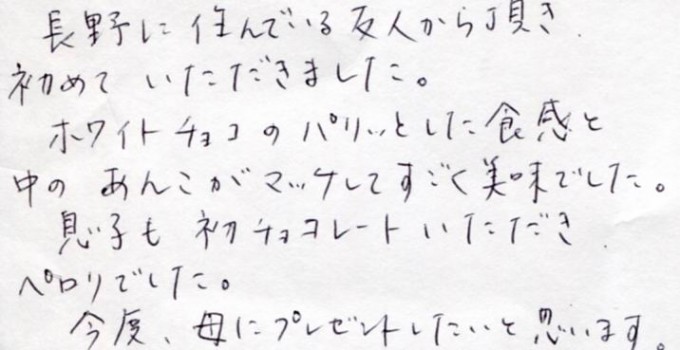 長野に住んでいる友人から頂き
初めて いただきました。
ホワイトチョコのパリッとした食感と
中の あんこがマッケしてすごく美味でした。
息子も 初チョコレートいただき
ペロリでした。
今度、母にプレゼントしたいと思います。